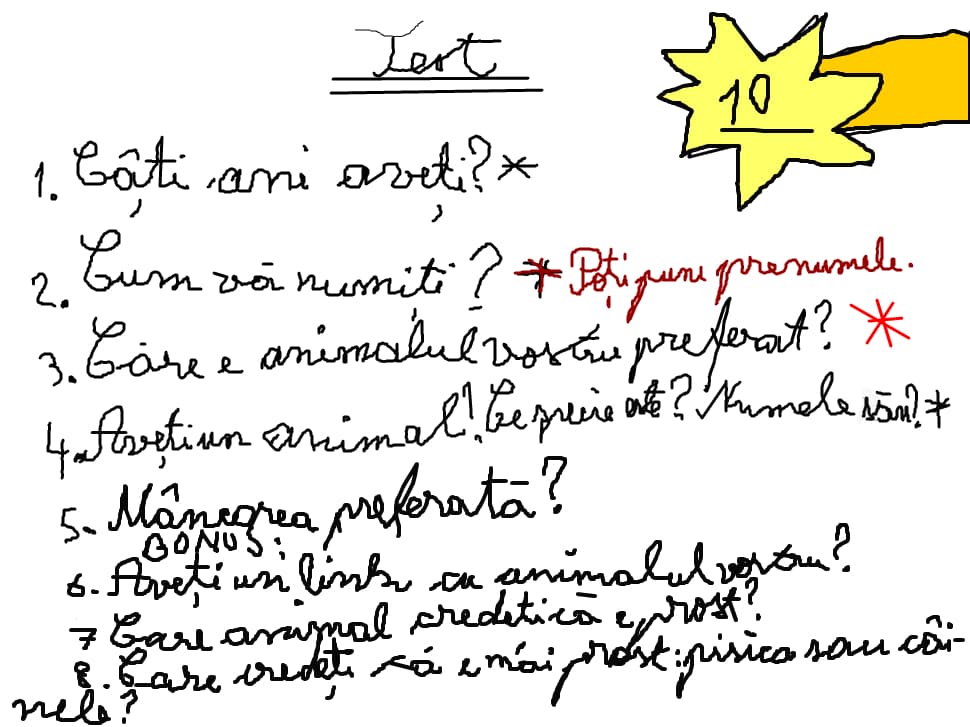 Test
10
1. Câți ani aveți? *
2. Cum vă numiți? * Poți pune prenumele.
3. Care e animalul vostru preferat? *
4. Aveți un animal? Ce specie este? Numele său? *
5. Mâncarea preferată?
BONUS:
6. Aveți un link cu animalul vostru?
7 Care animal credeti că e prost?
8. Care credeți că e mai prost: pisica sau câi-
nele?